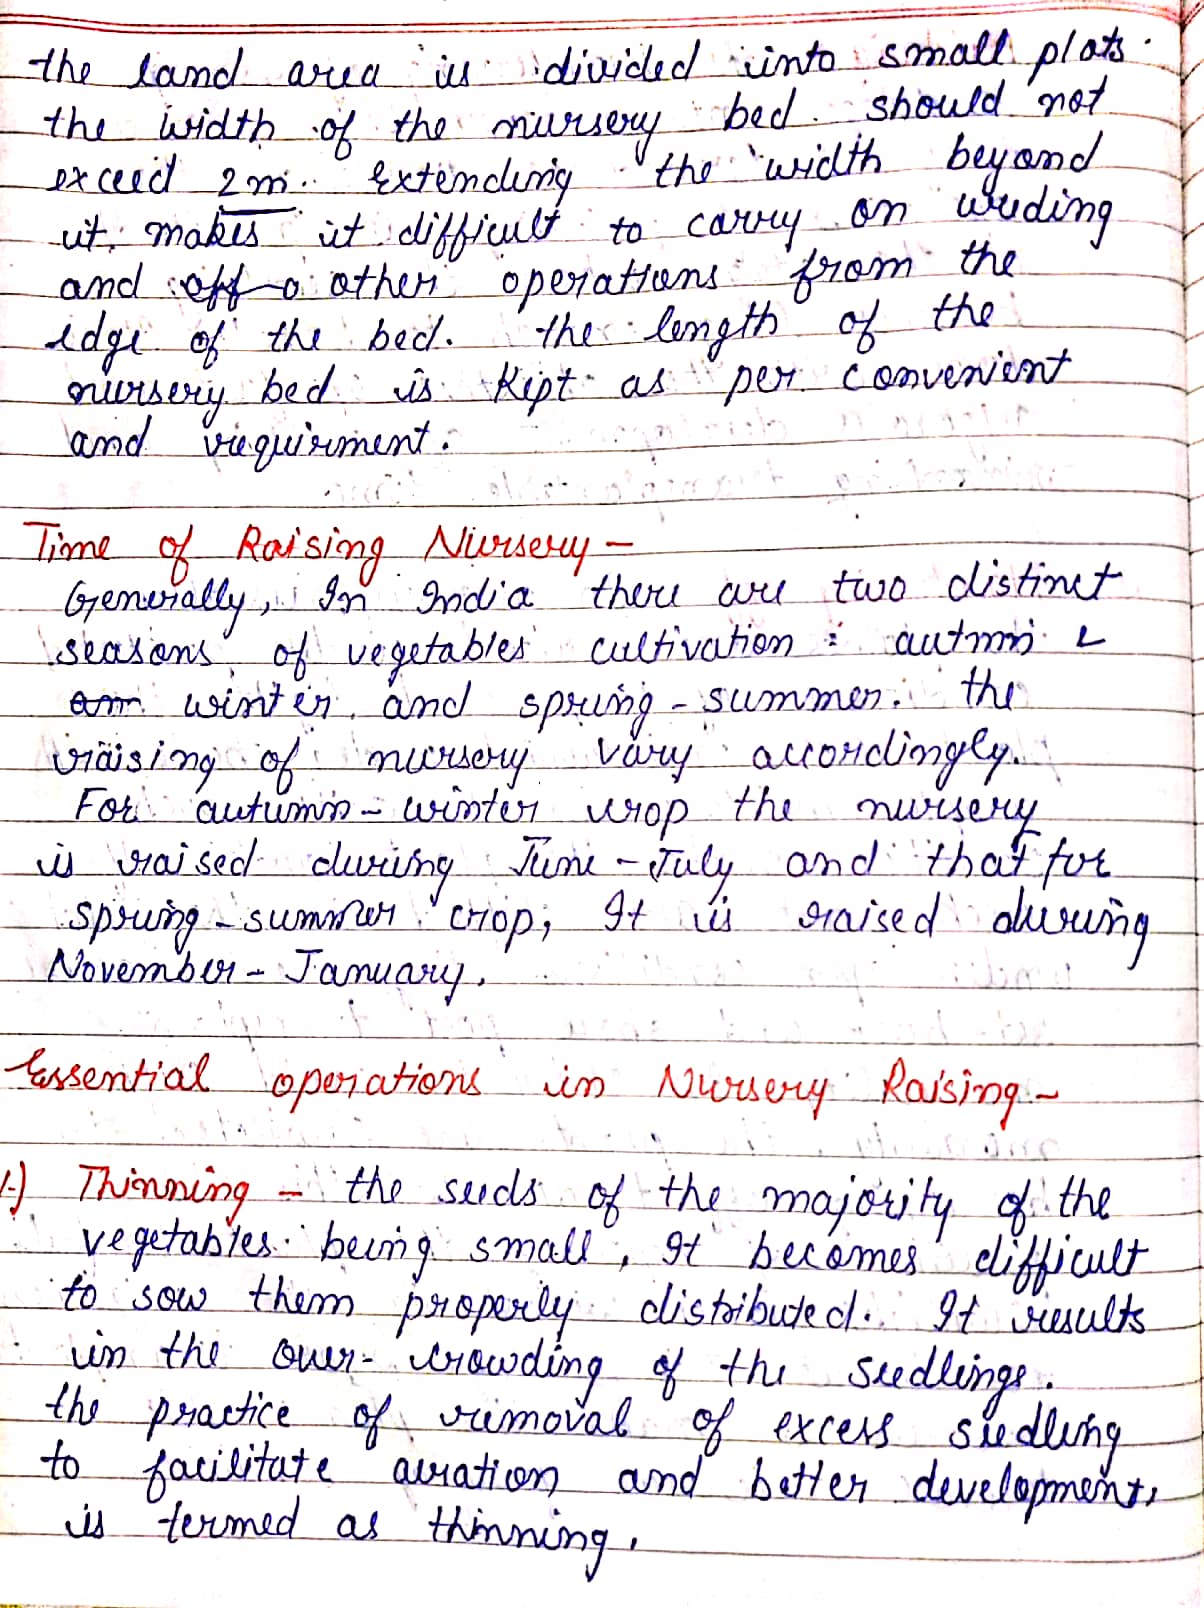 the land area is divided into small plots.
the width of the nursery bed should not
exceed 2m. Extending the width beyond
it makes it difficult to carry on weeding
and other operations from the
edge of the bed. the length of the
nursery bed is kept as per convenient
and requirment.
Time of Raising Nursery -
Generally, In India there are two distinct
seasons of vegetables cultivation : autmn &
winter and spring - summer. the
raising of nursery vary accordingly.
For autumn - winter crop the nursery
is raised during June - July and that for
spring - summer crop, It is raised during
November - January.
Essential operations in Nursery Raising -
1.) Thinning - the seeds of the majority of the
vegetables being small, It becomes difficult
to sow them properly distributed. It results
in the over-crowding of the seedlings.
the practice of removal of excess seedling
to facilitate airation and better development,
is termed as thinning.